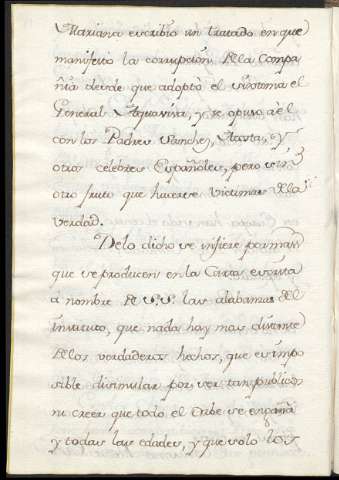 Mariana escribio un tratado en que
manifestó la corrupcion de la Compa
ñia desde que adoptó el sistema el
General Aquaviva, y se opuso a el
con los Padres Sanchez, Acosta, y
otros celebres Españoles, pero sin
otro fruto que hacerse victimas de la
verdad.
De lo dicho se infiere por mas
que se producen en la Carta escrita
á nombre de V.S. las alabanzas del
instituto, que nada hay mas distante
de los verdaderos hechos, que es impo
sible disimular por ser tan publicos
ni creer que todo el Orbe se engaña
y todas las edades, y que solo los